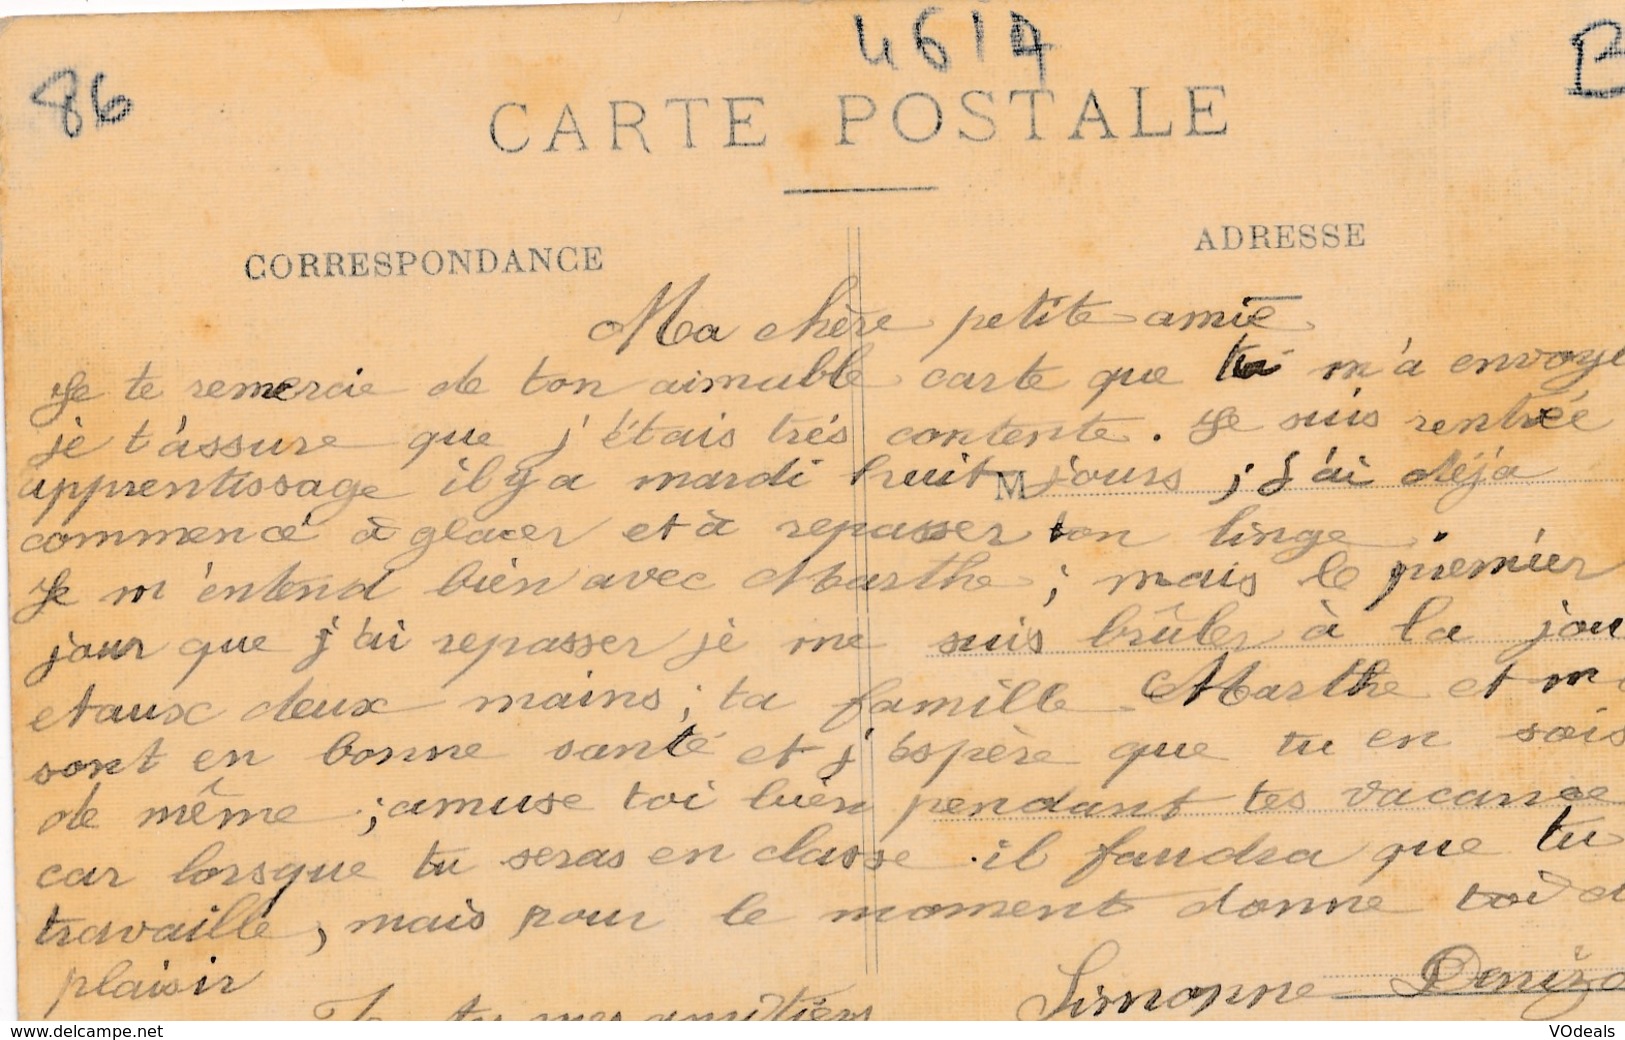 86
4614
B
CARTE POSTALE
CORRESPONDANCE
ADRESSE
Ma chère petite amie
Je te remercie de ton aimable carte que tu m'a envoye
je t'assure que j'étais trés contente. Je suis rentrée
apprentissage il y a mardi huit jours ; j'ai déja
M
commencé à glacer et à repasser ton linge.
Je m'entend bien avec Marthe ; mais le premier
jour que j'ai repasser je me suis brûler à la jou
et aux deux mains ; ta famille Marthe et m
sont en bonne santé et j'éspère que tu en sois
de même ; amuse toi bien pendant tes vacance
car lorsque tu seras en classe il faudra que tu
travaille, mais pour le moment donne toi d
plaisir
tu mes amitiers
Simonne Deniza
VOdeals
www.delcampe.net